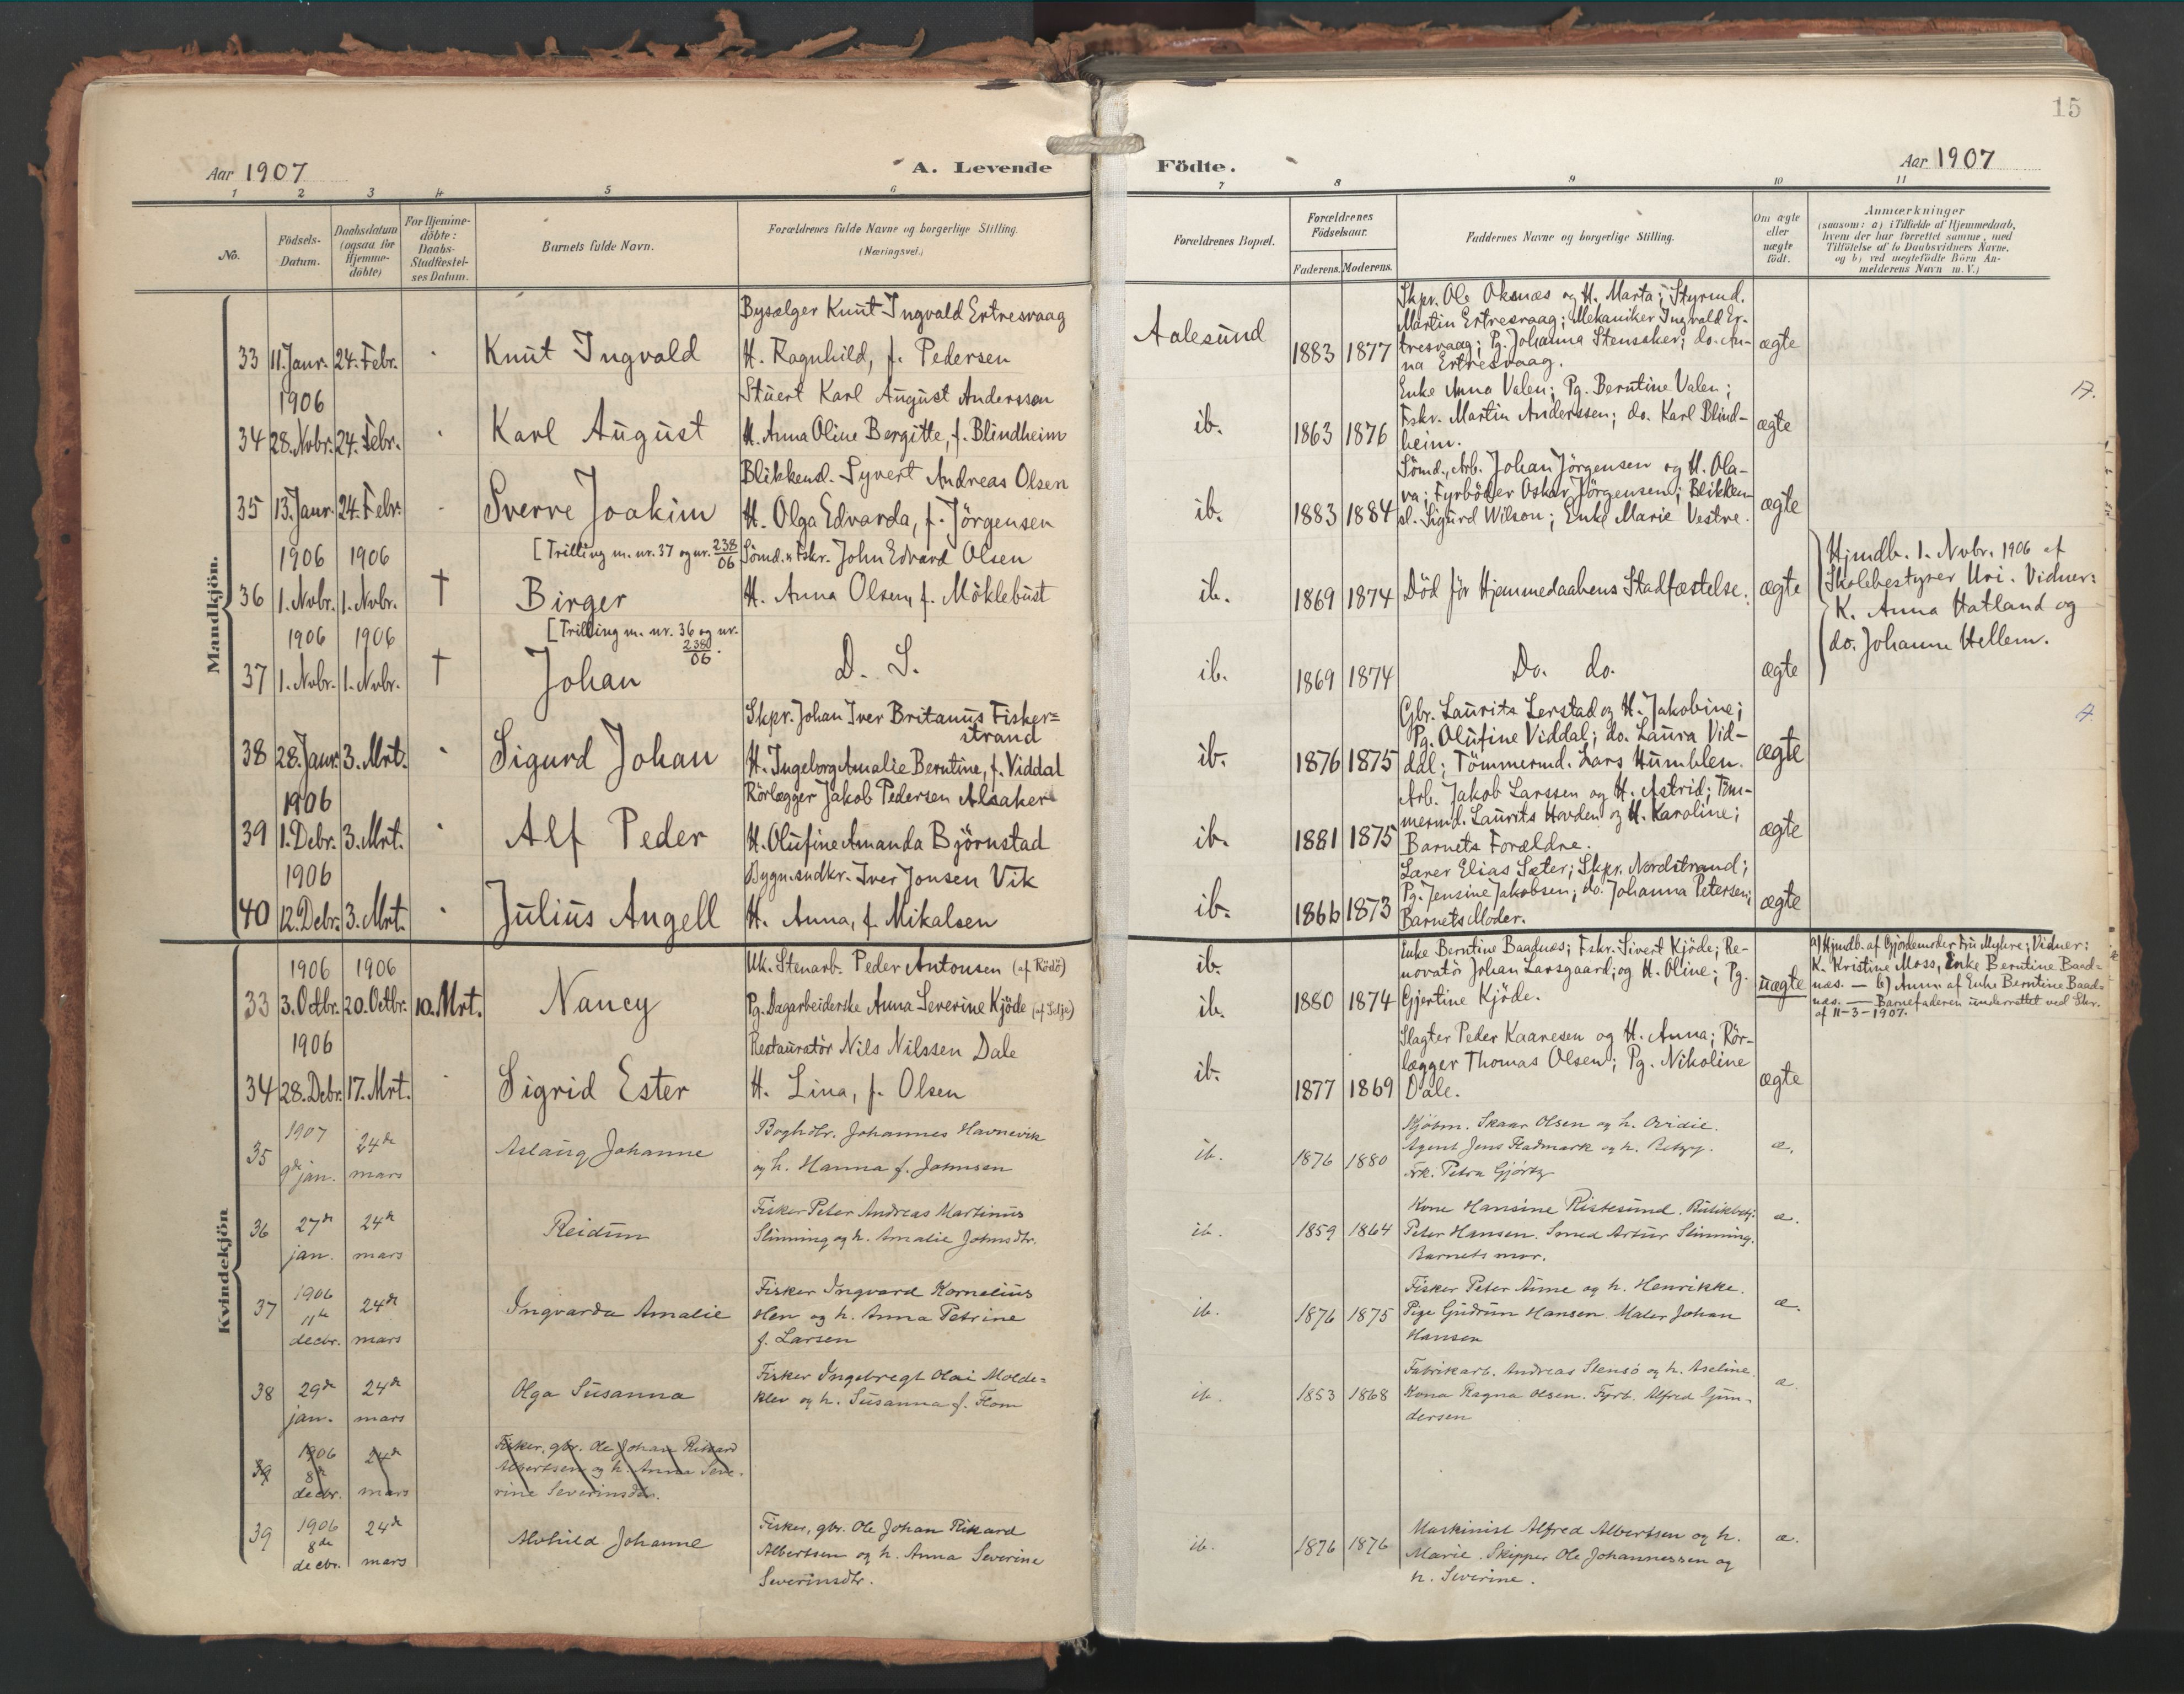 15
Aar 1907
A. Levende
Födte.
Aar 1907
1 2 3 4 5 6 7 8 9 10 11
No.
Födsels-
Datum.
Daabsdatum
(ogsaa for
Hjemme-
döbte)
For Hjemme-
döbte:
Daabs-
Stadfæstel-
ses Datum.
Barnets fulde Navn.
Forældrenes fulde Navne og borgerlige Stilling.
(Næringsvei.)
Forældrenes Bopæl.
Forældrenes
Födselsaar.
Faderens. Moderens.
Faddernes Navne og borgerlige Stilling.
Om ægte
eller
uægte
födt.
Anmærkninger
(saasom: a) i Tilfælde af Hjemmedaab,
hvem der har forrettet samme, med
Tilföielse af to Daabsvidners Navne,
og b) ved uægtefödte Börn An-
melderens Navn m. V.)
Mandkjön.
33 11. Janr. 24. Febr. Knut Ingvald
Bysælger Knut Ingvald Ertresvaag
H. Ragnhild, f. Pedersen
Aalesund
1883 1877
Skpr. Ole Oksnæs og H. Marta; Styrmd.
Martin Ertresvaag; Mekaniker Ingvald Er-
tresvaag; Pg. Johanna Stensaker; do. An-
na Ertresvaag.
ægte
1906
34 28. Nvbr. 24. Febr. Karl August
Stuert Karl August Anderssen
H. Anna Oline Bergitte, f. Blindheim
ib.
1863 1876
Enke Anna Valen; Pg. Berntine Valen;
Fskr. Martin Anderssen; do. Karl Blind-
heim.
ægte
35 13. Janr. 24. Febr. Sverre Joakim
Blikkensl. Syvert Andreas Olsen
H. Olga Edvarda, f. Jörgensen
ib.
1883 1884
Sömd., Arb. Johan Jörgensen og H. Ola-
va; Fyrböder Oskar Jörgensen; Blikken-
sl. Sigurd Wilson; Enke Marie Vestre.
ægte
1906 1906
[Trilling m. nr. 37 og nr. 238/06
36 1. Nvbr. 1. Nvbr. † Birger
Sömd. & Fskr. John Edvard Olsen
H. Anna Olsen, f. Möklebust
ib.
1869 1874
Död för Hjemmedaabens Stadfæstelse.
ægte
Hjmdb. 1. Nvbr. 1906 af
Skolebestyrer Uri. Vidner:
K. Anna Hatland og
do. Johanne Hellem.
1906 1906
[Trilling m. nr. 36 og nr.
2380/06.
37 1. Nvbr. 1. Nvbr. † Johan
D. S.
ib.
1869 1874
Do. do.
ægte
38 28. Janr. 3. Mrt. Sigurd Johan
Skpr. Johan Iver Britanus Fisker=
strand
H. Ingeborg Amalie Berntine, f. Viddal
ib.
1876 1875
Gbr. Laurits Lerstad og H. Jakobine;
Pg. Olufine Viddal; do. Laura Vid-
dal; Tömmermd. Lars Humblen.
ægte
1906
39 1. Debr. 3. Mrt. Alf Peder
Rörlægger Jakob Pedersen Alsaker
H. Olufine Amanda Björnstad
ib.
1881 1875
Arb. Jakob Larssen og H. Astrid; Töm-
mermd. Laurits Hovden og H. Karoline;
Barnets Forældre.
ægte
1906
40 12. Debr. 3. Mrt. Julius Angell
Bygn.sndkr. Iver Jonsen Vik
H. Anna, f. Mikalsen
ib.
1866 1873
Lærer Elias Sæter; Skpr. Nordstrand;
Pg. Jensine Jakobsen; do. Johanna Petersen;
Barnets Moder.
ægte
Kvindekjön
1906 1906
33 3. Octbr. 20. Octbr. 10. Mrt. Nancy
Uk. Stenarb. Peder Antonsen (af Rödö)
Pg. Dagarbeiderske Anna Severine Kjöde (af Selje)
ib.
ib.
1880 1874
Enke Berntine Baadnæs; Fskr. Sivert Kjöde; Re-
novatör Johan Larsgaard; og H. Oline; Pg.
Gjertine Kjöde.
uægte
a) Hjmdb. af Gjordemoder Fru Myhre; Vidner:
K. Kristine Moss, Enke Berntine Baad-
næs. — b) Anm. af Enke Berntine Baad-
næs. — Barnefaderen underrettet ved Skr.
af 11-3-1907.
1906
34 28. Debr. 17. Mrt. Sigrid Ester
Restauratör Nils Nilssen Dale
H. Lina, f. Olsen
ib.
1877 1869
Slagter Peder Kaaresen og H. Anna; Rör-
lægger Thomas Olsen; Pg. Nikoline
Dale.
ægte
35 1907 9de jan. 24de mars Aslaug Johanne
Boghdlr. Johannes Havnevik
og h. Hanna f. Johnsen
ib.
1876 1880
Kjöbm. Skaar Olsen og h. Ovidie.
Agent Jens Kadmark og h.
Frk. Petra Gjörtz
æ.
36 27de jan. 24de mars Reidun
Fisker Peter Andreas Martinus
Slinning og h. Amalie Johnsdtr.
ib.
1859 1864
Kone Hansine Ristesund. Butikbetj.
Peter Hansen. Smed Artur Slinning.
Barnets mor.
æ.
37 1906 11te decbr. 24de mars Ingvarda Amalie
Fisker Ingvard Kornelius
Hen og h. Anna Petrine
f. Larsen
ib.
1876 1875
Fisker Peter Aune og h. Henrikke.
Pige Gudrun Hansen. Maler Johan
Hansen
æ.
38 29de jan. 24de mars Olga Susanna
Fisker Ingebregt Olai Molde=
klev og h. Susanna f. Flom
ib.
1853 1868
Fabrikarb. Andreas Stensö og h. Aseline.
Kona Ragna Olsen. Fyrb. Alfred Gun-
dersen
æ.
39 1906 8de decbr. 24de mars
Fisker, gbr. Ole Johan Rikard
Albertsen og h. Anna Seve-
rine Severinsdtr.
39 1906 8de decbr. 24de mars Alvhild Johanne
Fisker, gbr. Ole Johan Rikard
Albertsen og h. Anna Severine
Severinsdtr.
ib.
1876 1876
Maskinist Alfred Albertsen og h.
Marie. Skipper Ole Johannessen og
h. Severine.
æ.